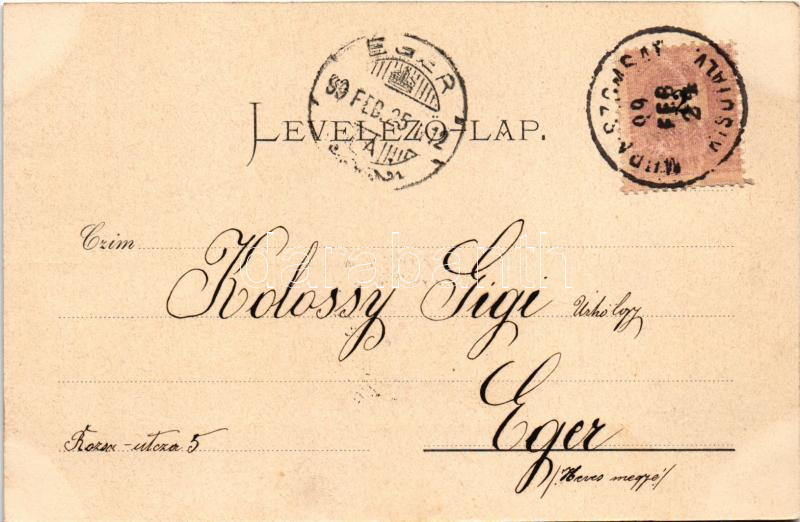 EGER
99 FEB. 25
MURASZOMBAT
99 FEB 24
LEVELEZŐ-LAP.
Czim
darabanth
Kolossy Gigi
Eger
Rozsa-utcza 5
/Heves megye/